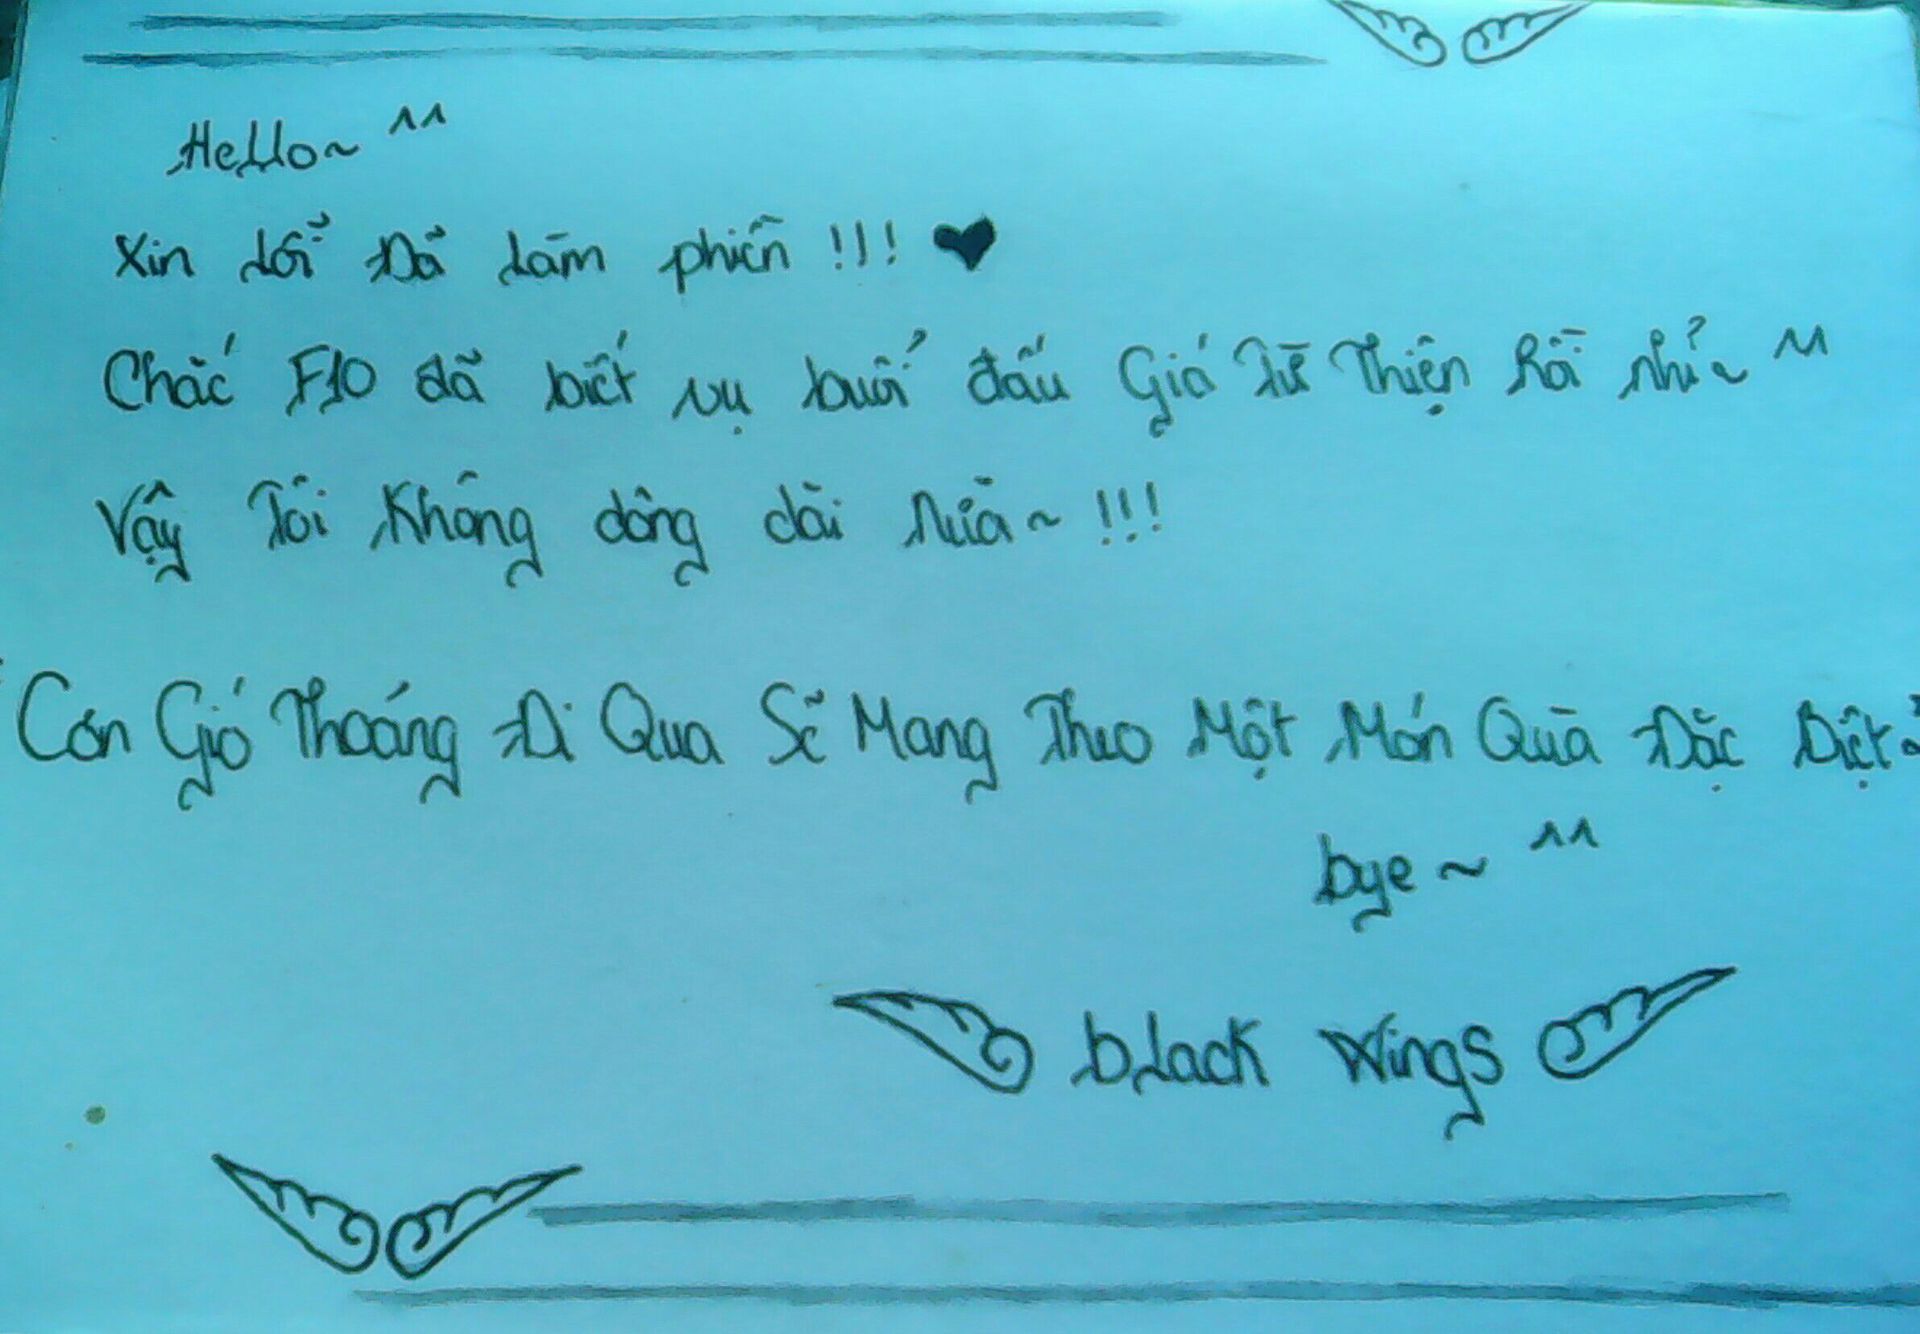 Hello~ ^^
Xin lỗi Đã làm phiền !!! ♥
Chắc F10 đã biết vụ buổi đấu Giá Từ Thiện Rồi nhỉ~ ^^
Vậy Tôi Không dông dài Nữa~ !!!
Cơn Gió Thoáng Đi Qua Sẽ Mang Theo Một Món Quà Đặc Biệt~
bye~ ^^
black Wings